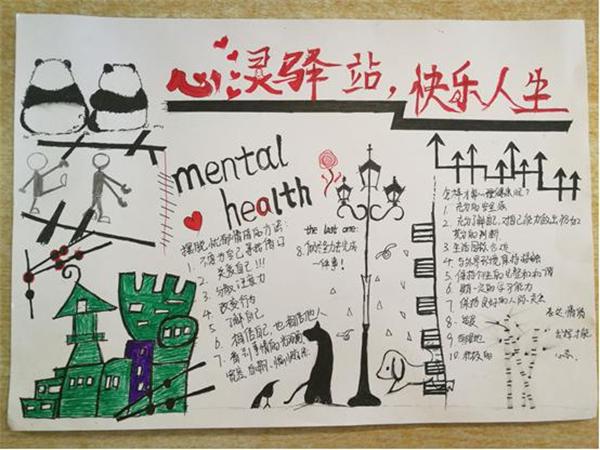 心灵驿站，快乐人生
mental
health
摆脱忧郁情绪的方法：
1. 不要为自己寻找借口
2. 关爱自己!!!
3. 分散注意力
4. 改变行为
5. 了解自己
6. 相信自己，也相信他人
7. 看到事情的光明面
the last one:
8. 付诸全力去完成
一件事!
怎样才算心理健康呢？
1. 充分的安全感
2. 充分了解自己，对自己能力做出恰如
其分的判断
3. 生活目标合理
4. 与外界环境保持接触
5. 保持个性的完整和和谐
6. 具一定的学习能力
7. 保持良好的人际关系
8.
9.
10.